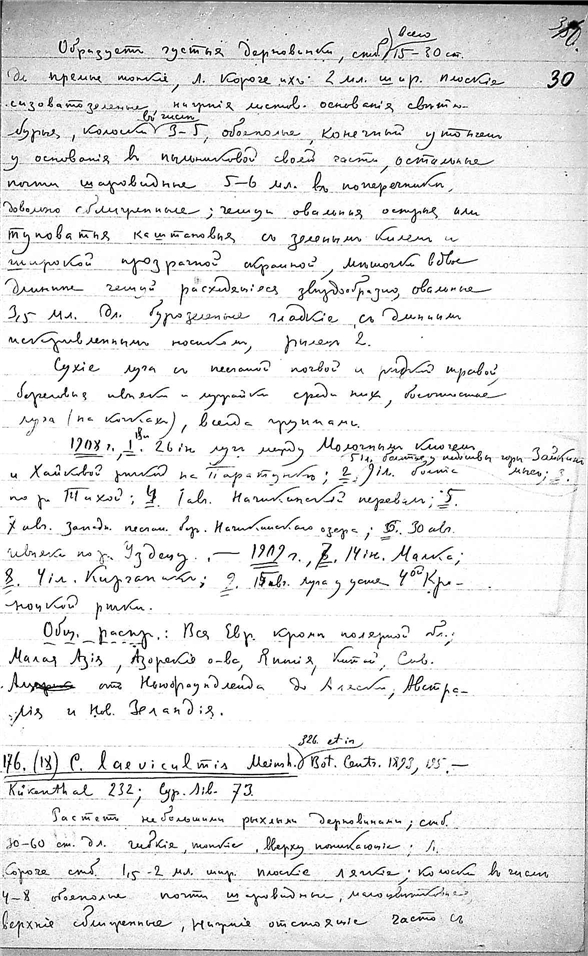 30
Образуетъ густыя дерновинки, стбл. всего 15-30 ст.
дл. прямые тонкіе, л. короче ихъ 2 мл. шир. плоскіе
сизоватозеленые, нижнія листов. основанія свѣтло-
бурыя, колоски въ числѣ 3-5, обоеполые, конечный утонченъ
у основанія въ пыльниковой своей части, остальные
почти шаровидные 5-6 мл. въ поперечникѣ,
довольно сближенные; чешуи овальныя острыя или
туповатыя каштановыя съ зеленымъ килемъ и
широкой прозрачной окраиной, мѣшочки вдвое
длиннѣе чешуй расходящіеся звѣздообразно, овальные
3,5 мл. дл. бурозеленые гладкіе съ длиннымъ
искривленнымъ носикомъ, рылец 2.
Сухіе луга съ песчаной почвой и рѣдкой травой,
береговые ивняки и лужайки среди нихъ, болотистые
луга (на кочкахъ), всегда группами.
1908 г., 1. 26 іюн. луга между Молочнымъ Ключемъ
и Хайковой рѣчкой на Паратунку; 2. 5 іл. болотце у подошвы горы Зайкинъ мысъ; 3. 9 іл. болота
по р. Тихой; 4. 1 авг. Начикинскій перевалъ; 5.
X авг. Западн. песчан. бер. Начикинскаго озера; 6. 30 авг.
ивняки по р. Уздецу. — 1909 г., 7. 14 іюн. Малка;
8. 4 іл. Кирганикъ; 9. авг. луга у устья 4ой Кре-
ноцкой рѣчки.
Общ. распр.: Вся Евр. кромѣ полярной обл.;
Малая Азія, Азорскіе о-ва, Японія, Китай, Сѣв.
Ам. отъ Ньюфаундленда до Аляски, Австра-
лія и Нов. Зеландія.
176. (18) C. laeviculmis Meinsh. Bot. Centr. 1893, 195. — 326. et in
Kükenthal 232; Cyp. Sib. 73.
Растетъ небольшими рыхлыми дерновинами; стбл.
30-60 ст. дл. гибкіе, тонкіе, вверху поникающіе; л.
короче стбл. 1,5-2 мл. шир. плоскіе мягкіе; колоски въ числѣ
4-8 обоеполые почти шаровидные, малоцвѣтковые,
верхніе сближенные, нижніе отстоящіе часто съ